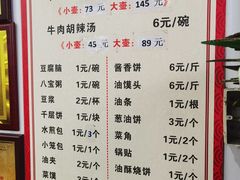 《小壶: 73 元 大壶: 145 元》
牛肉胡辣汤 6元/碗
《小壶: 45 元 大壶: 89 元》
豆腐脑 1元/碗 酱香饼 6元/斤
八宝粥 1元/碗 油馍头 6元/斤
豆浆 2元/杯 油条 1元/根
千层饼 1元/块 葱油饼 3元/张
水煎包 1元/3个 菜角 1元/个
小笼包 1元/个 锅贴 1元/2个
油夹 2元/个 油酥烧饼 1元/个
菜馍 2元/个